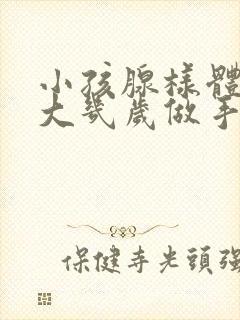 小孩腺樣體
大幾歲做手
保健寺光頭強